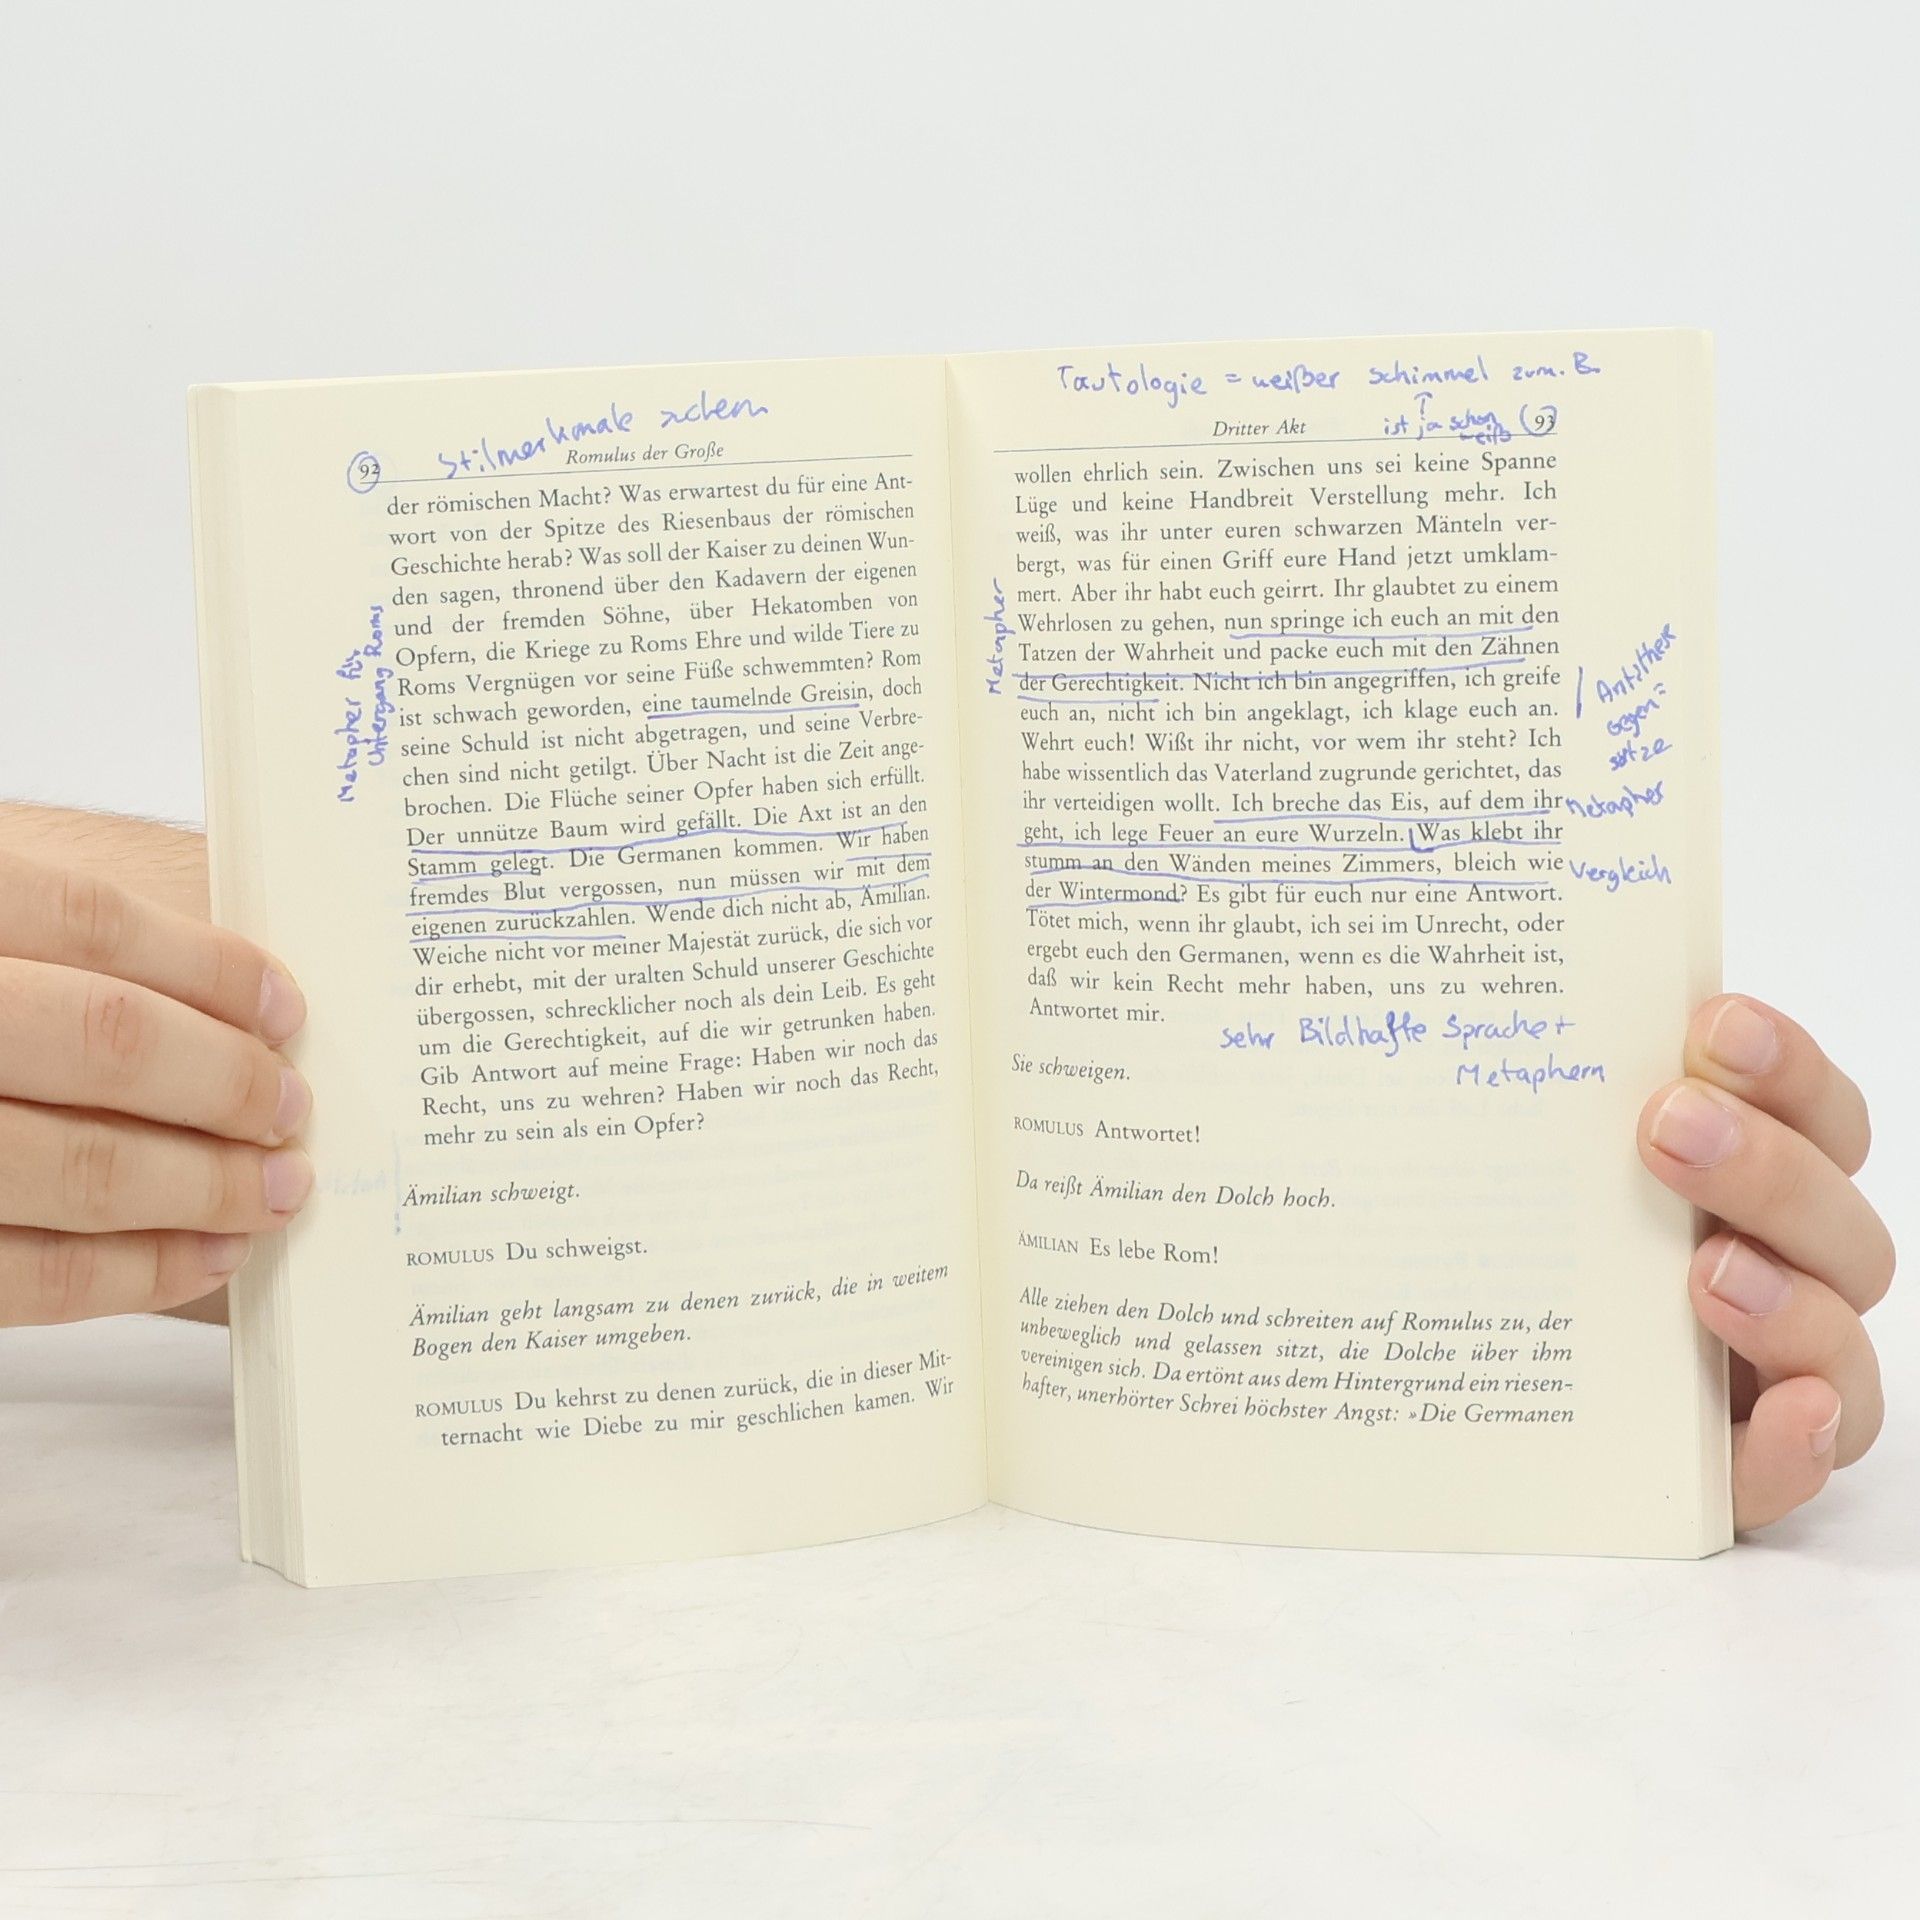 Stilmerkmale suchen
92 Romulus der Große
der römischen Macht? Was erwartest du für eine Ant-
wort von der Spitze des Riesenbaus der römischen
Geschichte herab? Was soll der Kaiser zu deinen Wun-
den sagen, thronend über den Kadavern der eigenen
und der fremden Söhne, über Hekatomben von
Opfern, die Kriege zu Roms Ehre und wilde Tiere zu
Roms Vergnügen vor seine Füße schwemmten? Rom
ist schwach geworden, eine taumelnde Greisin, doch
seine Schuld ist nicht abgetragen, und seine Verbre-
chen sind nicht getilgt. Über Nacht ist die Zeit ange-
brochen. Die Flüche seiner Opfer haben sich erfüllt.
Der unnütze Baum wird gefällt. Die Axt ist an den
Stamm gelegt. Die Germanen kommen. Wir haben
fremdes Blut vergossen, nun müssen wir mit dem
eigenen zurückzahlen. Wende dich nicht ab, Ämilian.
Weiche nicht vor meiner Majestät zurück, die sich vor
dir erhebt, mit der uralten Schuld unserer Geschichte
übergossen, schrecklicher noch als dein Leib. Es geht
um die Gerechtigkeit, auf die wir getrunken haben.
Gib Antwort auf meine Frage: Haben wir noch das
Recht, uns zu wehren? Haben wir noch das Recht,
mehr zu sein als ein Opfer?
Metapher für
Untergang Roms
Ämilian schweigt.
ROMULUS Du schweigst.
Ämilian geht langsam zu denen zurück, die in weitem
Bogen den Kaiser umgeben.
ROMULUS Du kehrst zu denen zurück, die in dieser Mit-
ternacht wie Diebe zu mir geschlichen kamen. Wir
Tautologie = weißer schimmel zum. B.
↑
ist ja schon
weiß
Dritter Akt 93
wollen ehrlich sein. Zwischen uns sei keine Spanne
Lüge und keine Handbreit Verstellung mehr. Ich
weiß, was ihr unter euren schwarzen Mänteln ver-
bergt, was für einen Griff eure Hand jetzt umklam-
mert. Aber ihr habt euch geirrt. Ihr glaubtet zu einem
Wehrlosen zu gehen, nun springe ich euch an mit den
Tatzen der Wahrheit und packe euch mit den Zähnen
der Gerechtigkeit. Nicht ich bin angegriffen, ich greife
euch an, nicht ich bin angeklagt, ich klage euch an.
Wehrt euch! Wißt ihr nicht, vor wem ihr steht? Ich
habe wissentlich das Vaterland zugrunde gerichtet, das
ihr verteidigen wollt. Ich breche das Eis, auf dem ihr
geht, ich lege Feuer an eure Wurzeln. Was klebt ihr
stumm an den Wänden meines Zimmers, bleich wie
der Wintermond? Es gibt für euch nur eine Antwort.
Tötet mich, wenn ihr glaubt, ich sei im Unrecht, oder
ergebt euch den Germanen, wenn es die Wahrheit ist,
daß wir kein Recht mehr haben, uns zu wehren.
Antwortet mir.
Metapher
Antithese
Gegen=
sätze
Metapher
Vergleich
sehr Bildhafte Sprache +
Metaphern
Sie schweigen.
ROMULUS Antwortet!
Da reißt Ämilian den Dolch hoch.
ÄMILIAN Es lebe Rom!
Alle ziehen den Dolch und schreiten auf Romulus zu, der
unbeweglich und gelassen sitzt, die Dolche über ihm
vereinigen sich. Da ertönt aus dem Hintergrund ein riesen-
hafter, unerhörter Schrei höchster Angst: »Die Germanen